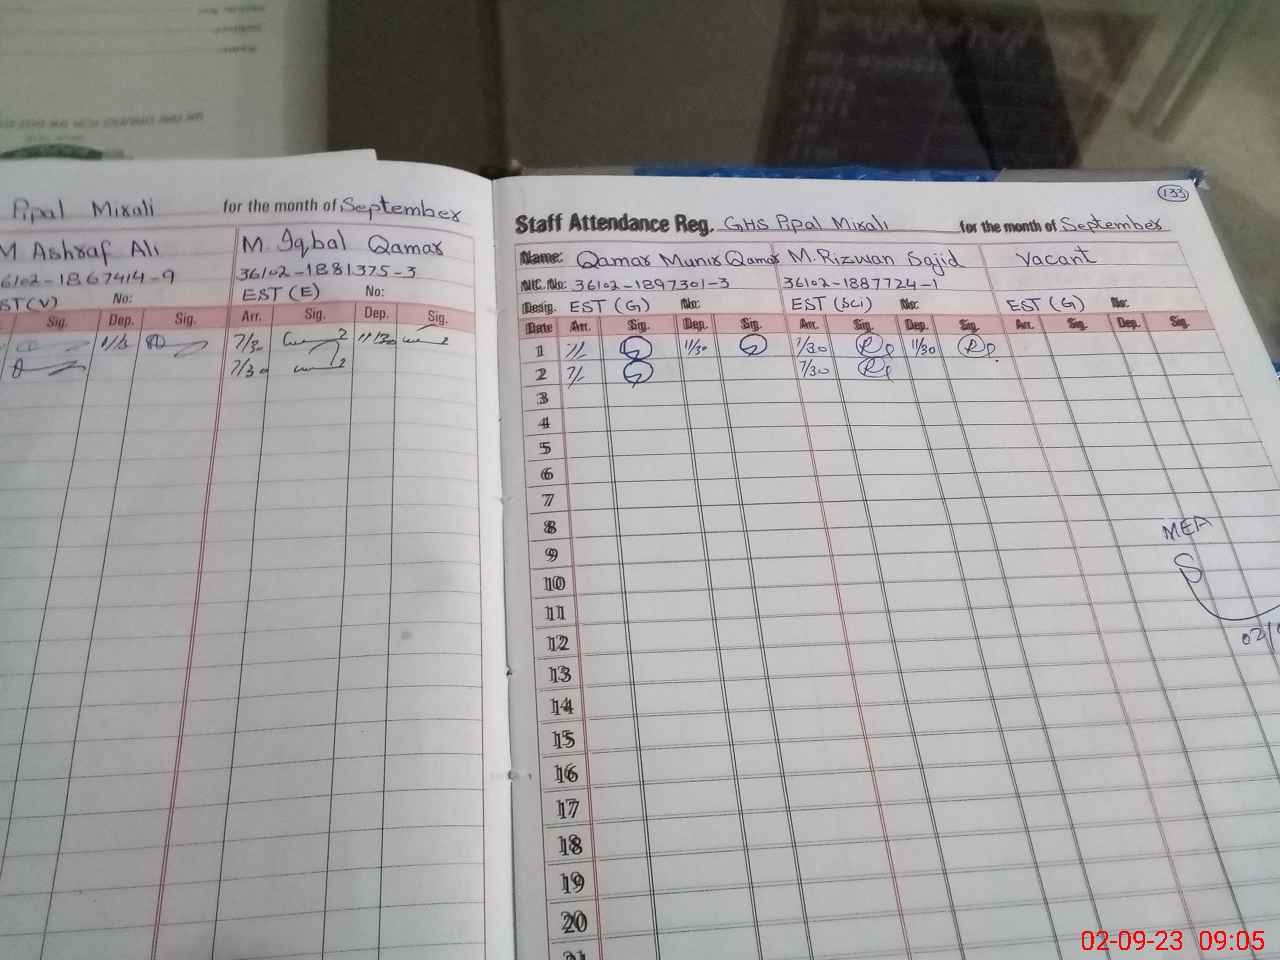 Pipal Mirali for the month of September
M Ashraf Ali M. Iqbal Qamar
6102-1867414-9 36102-1881375-3
EST(V) No: EST (E) No:
Sig. Dep. Sig. Arr. Sig. Dep. Sig.
7/30 11/30
7/30
133
Staff Attendance Reg. GHS Pipal Mirali for the month of September
Name: Qamar Munir Qamar M. Rizwan Sajid Vacant
NIC. No: 36102-1897301-3 36102-1887724-1
Desig. EST (G) No: EST (Sci) No: EST (G) No:
Date Arr. Sig. Dep. Sig. Arr. Sig. Dep. Sig. Arr. Sig. Dep. Sig.
1 11/30 7/30 11/30
2 7/30
3
4
5
6
7
8
9
10
11
12
13
14
15
16
17
18
19
20
21
MEA
02/
02-09-23 09:05